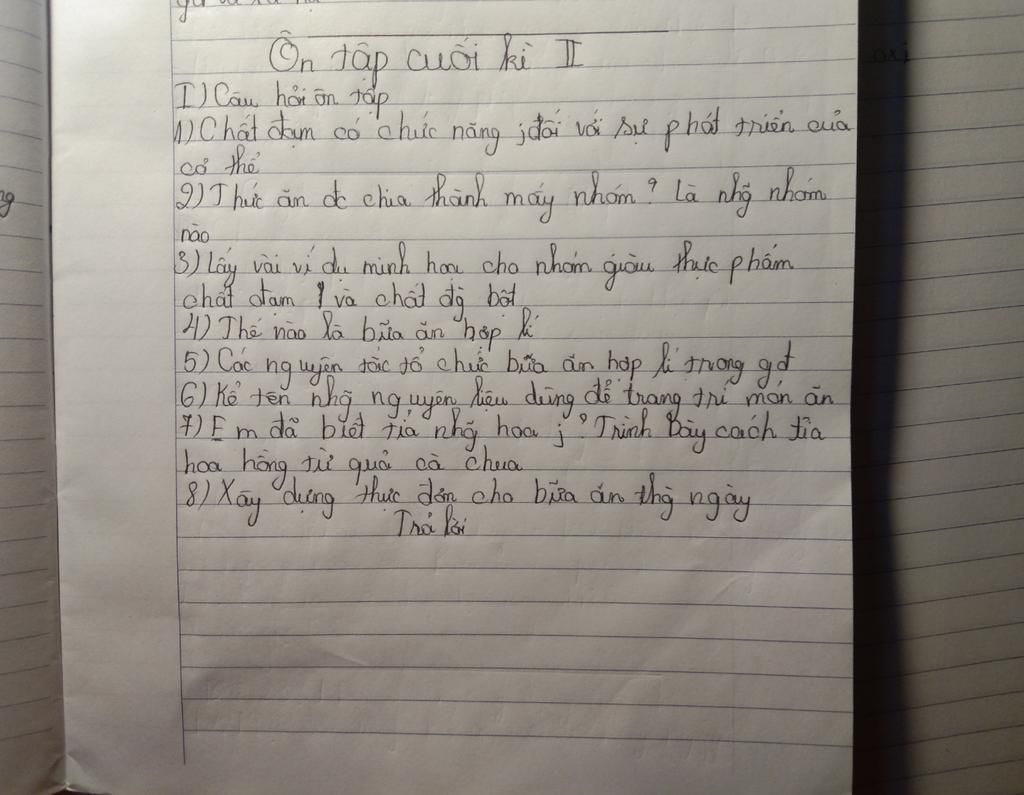 Ôn tập cuối kì II
I) Câu hỏi ôn tập
1) Chất đạm có chức năng j đối với sự phát triển của
cơ thể
2) Thức ăn đc chia thành mấy nhóm? Là nhg~ nhóm
nào
3) Lấy vài ví dụ minh họa cho nhóm giàu thực phẩm
chất đạm và chất đg bột
4) Thế nào là bữa ăn hợp lí
5) Các nguyên tắc tổ chức bữa ăn hợp lí trong gđ
6) Kể tên nhg~ nguyên liệu dùng để trang trí món ăn
7) Em đã biết tỉa nhg~ hoa j? Trình bày cách tỉa
hoa hồng từ quả cà chua
8) Xây dựng thực đơn cho bữa ăn thg ngày
Trả lời